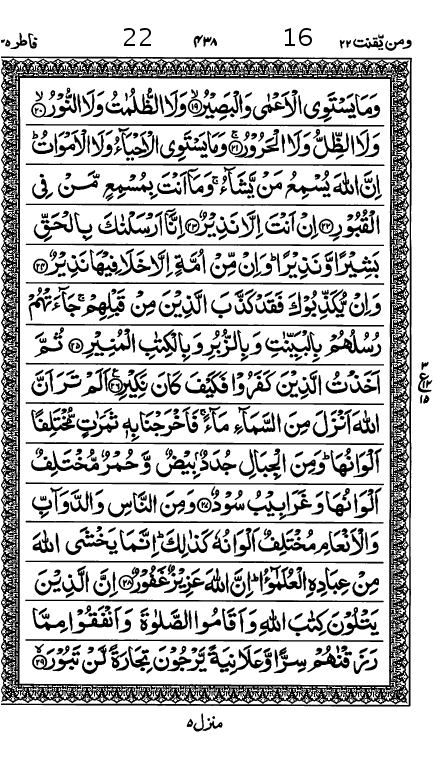 ومن یقنت ۲۲ 16 ۴۳۸ 22 فاطر ۳۵
وَمَا يَسْتَوِى الْاَعْمٰى وَالْبَصِيْرُ ۙ‏﴿۱۹﴾ وَلَا الظُّلُمٰتُ وَلَا النُّوْرُ ۙ‏﴿۲۰﴾
وَلَا الظِّلُّ وَلَا الْحَرُوْرُ ۚ‏﴿۲۱﴾ وَمَا يَسْتَوِى الْاَحْيَآءُ وَلَا الْاَمْوَاتُ ؕ
اِنَّ اللّٰهَ يُسْمِعُ مَنْ يَّشَآءُ ۚ وَمَاۤ اَنْتَ بِمُسْمِعٍ مَّنْ فِى
الْقُبُوْرِ ﴿۲۲﴾ اِنْ اَنْتَ اِلَّا نَذِيْرٌ ﴿۲۳﴾ اِنَّاۤ اَرْسَلْنٰكَ بِالْحَقِّ
بَشِيْرًا وَّنَذِيْرًا ؕ وَاِنْ مِّنْ اُمَّةٍ اِلَّا خَلَا فِيْهَا نَذِيْرٌ ﴿۲۴﴾
وَاِنْ يُّكَذِّبُوْكَ فَقَدْ كَذَّبَ الَّذِيْنَ مِنْ قَبْلِهِمْ ۚ جَآءَتْهُمْ
رُسُلُهُمْ بِالْبَيِّنٰتِ وَبِالزُّبُرِ وَبِالْكِتٰبِ الْمُنِيْرِ ﴿۲۵﴾ ثُمَّ
اَخَذْتُ الَّذِيْنَ كَفَرُوْا فَكَيْفَ كَانَ نَكِيْرِ ﴿۲۶﴾ اَلَمْ تَرَ اَنَّ
اللّٰهَ اَنْزَلَ مِنَ السَّمَآءِ مَآءً ۚ فَاَخْرَجْنَا بِهٖ ثَمَرٰتٍ مُّخْتَلِفًا
اَلْوَانُهَا ؕ وَمِنَ الْجِبَالِ جُدَدٌۢ بِيْضٌ وَّحُمْرٌ مُّخْتَلِفٌ
اَلْوَانُهَا وَغَرَابِيْبُ سُوْدٌ ﴿۲۷﴾ وَمِنَ النَّاسِ وَالدَّوَآبِّ
وَالْاَنْعَامِ مُخْتَلِفٌ اَلْوَانُهٗ كَذٰلِكَ ؕ اِنَّمَا يَخْشَى اللّٰهَ
مِنْ عِبَادِهِ الْعُلَمٰٓؤُا ؕ اِنَّ اللّٰهَ عَزِيْزٌ غَفُوْرٌ ﴿۲۸﴾ اِنَّ الَّذِيْنَ
يَتْلُوْنَ كِتٰبَ اللّٰهِ وَاَقَامُوا الصَّلٰوةَ وَاَنْفَقُوْا مِمَّا
رَزَقْنٰهُمْ سِرًّا وَّعَلَانِيَةً يَّرْجُوْنَ تِجَارَةً لَّنْ تَبُوْرَ ۙ‏﴿۲۹﴾
۳
ع
۱۵
منزل ۵